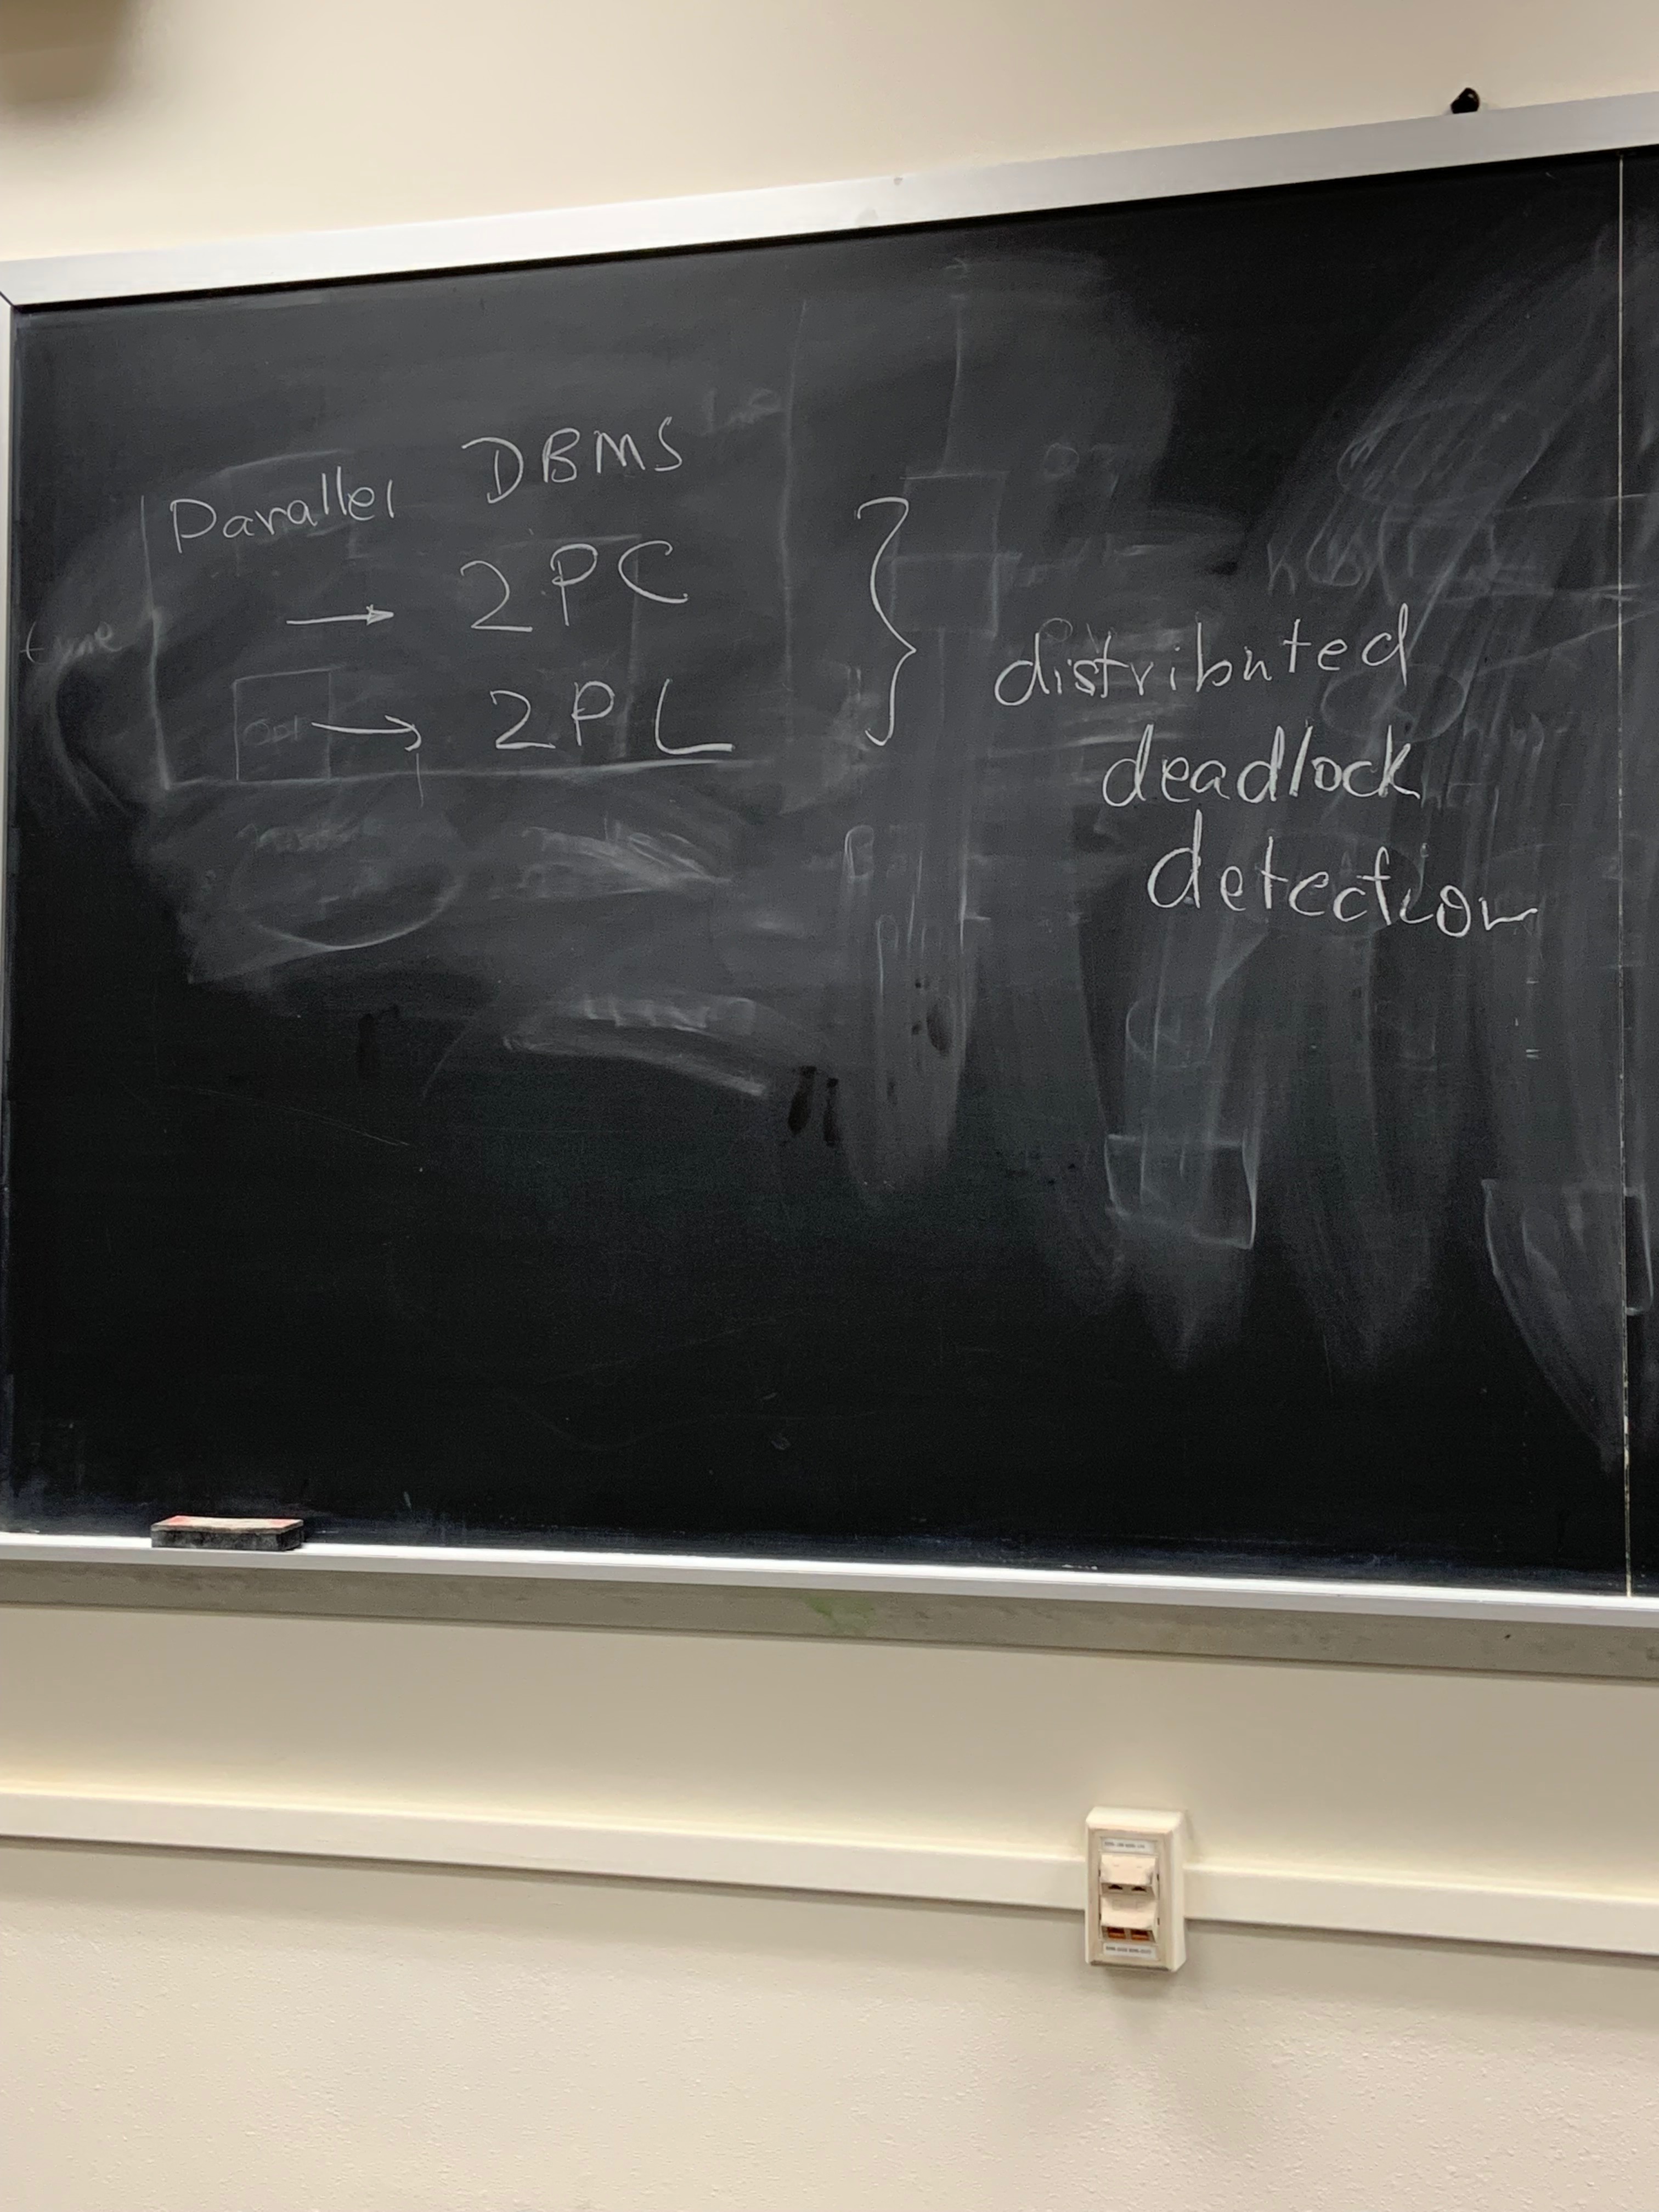 Parallel DBMS
→ 2PC
→ 2PL
} distributed
deadlock
detection
time